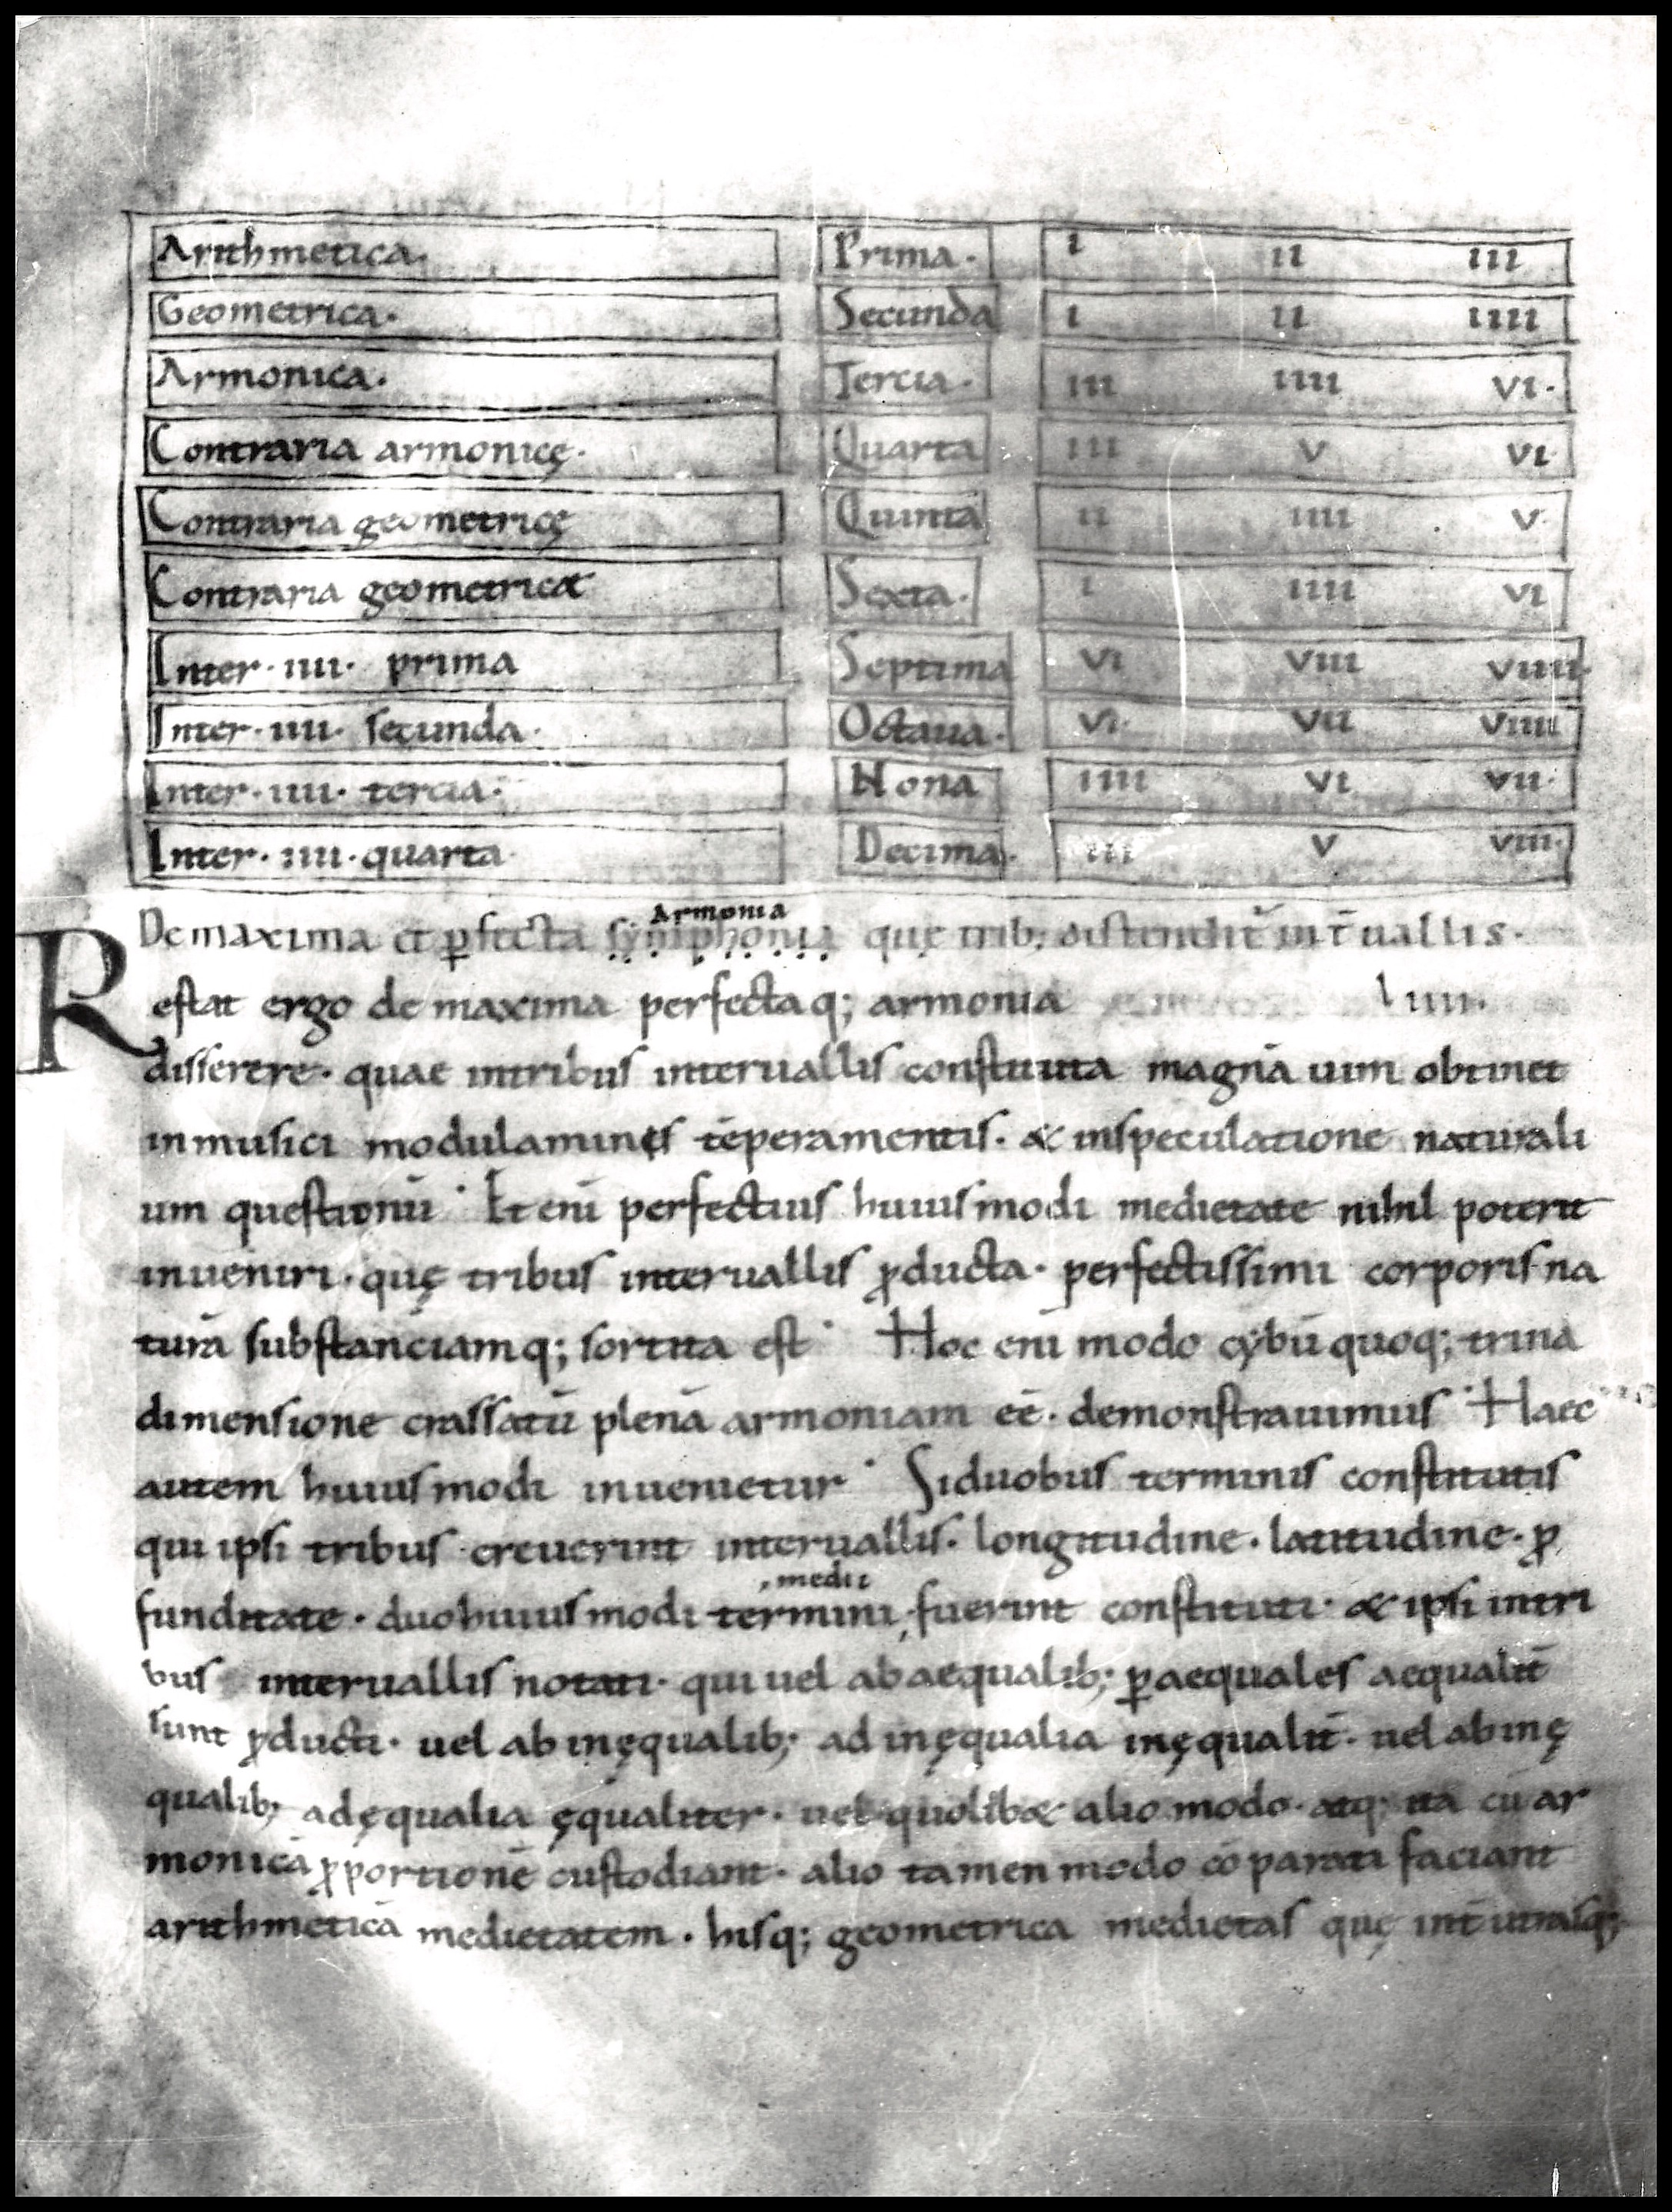 Arithmetica. Prima. I II III
Geometrica. Secunda I II IIII
Armonica. Tercia. III IIII VI.
Contraria armonicę. Quarta III V VI
Contraria geometricę Quinta II IIII V
Contraria geometricæ Sexta. I IIII VI
Inter. IIII. prima Septima VI VIII VIIII.
Inter. IIII. secunda. Octaua. VI. VII VIIII
Inter. IIII. tercia. Nona IIII VI VII.
Inter. IIII. quarta Decima. III V VIII.
Armonia
De maxima et ꝑfecta symphonia quę trib; in t̄uallis.
Restat ergo de maxima perfectaq; armonia LIIII.
disserere. quae intribus interuallis constituta magnā uim obtinet
inmusici modulaminis tēperamentis. & inspeculatione naturali
um questionū. Et eni perfectius huiusmodi medietate nihil poterit
inueniri. quę tribus interuallis ꝓducta. perfectissimi corporis na
turā substanciamq; sortita est. Hoc eni modo cybū quoq; trina
dimensione crassatū plenā armoniam eē. demonstrauimus. Haec
autem huiusmodi inuenietur. Siduobus terminis constitutis
qui ipsi tribus creuerint interuallis. longitudine. latitudine. ꝓ
medii
funditate. duohuiusmodi termini, fuerint constituti. & ipsi intri
bus interuallis notati. qui uel abaequalib; ꝑaequales aequalit̄
sunt ꝓducti. uel ab inęqualib; ad inęqualia inęqualit̄. uel abinę
qualib; adęqualia ęqualiter. uel quolib& alio modo. atq; ita cū ar
monicā ꝓportionē custodiant. alio tamen modo cōparati faciant
arithmeticā medietatem. hisq; geometrica medietas quę int̄ utrasq;